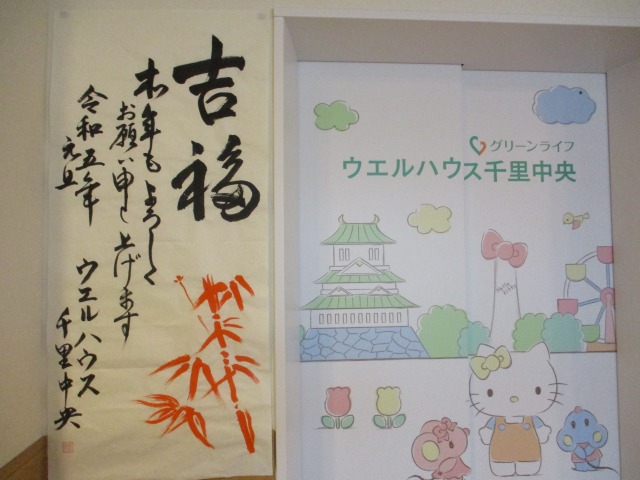 吉福
本年もよろしく
お願い申し上げます
令和五年
元旦
ウエルハウス
千里中央
グリーンライフ
ウエルハウス千里中央